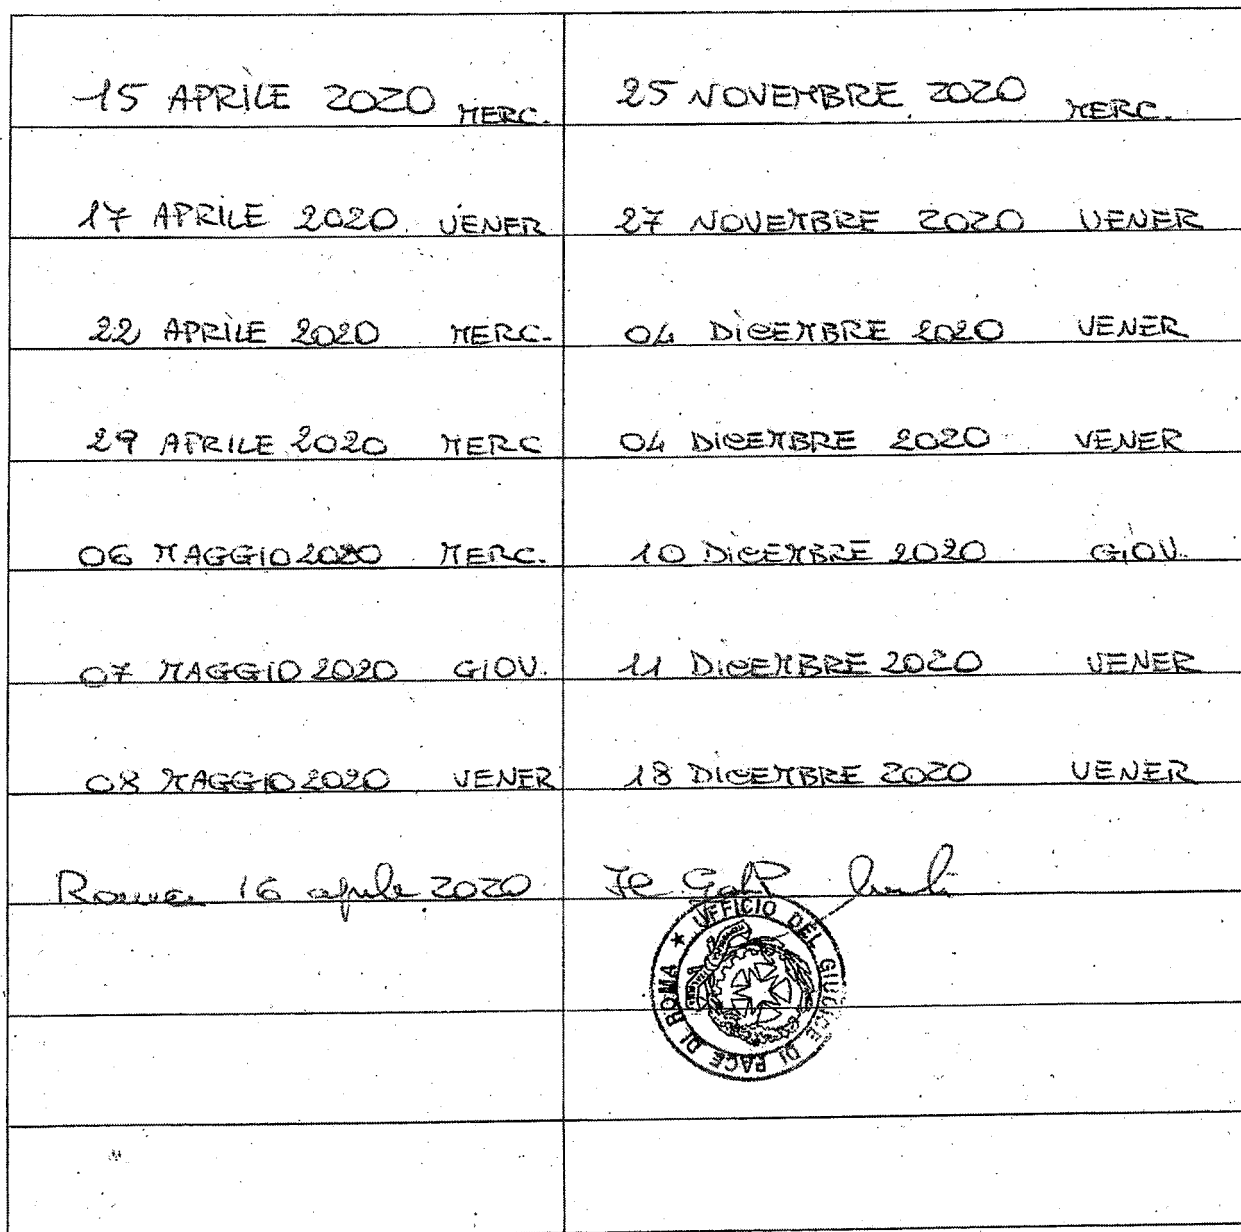 15 APRILE 2020 MERC. 25 NOVEMBRE 2020 MERC.
17 APRILE 2020 VENER 27 NOVEMBRE 2020 VENER
22 APRILE 2020 MERC. 04 DICEMBRE 2020 VENER
29 APRILE 2020 MERC 04 DICEMBRE 2020 VENER
06 MAGGIO 2020 MERC. 10 DICEMBRE 2020 GIOV.
07 MAGGIO 2020 GIOV. 11 DICEMBRE 2020 VENER
08 MAGGIO 2020 VENER 18 DICEMBRE 2020 VENER
Roma 16 aprile 2020 Il GdP
★ UFFICIO DEL GIUDICE DI PACE DI ROMA